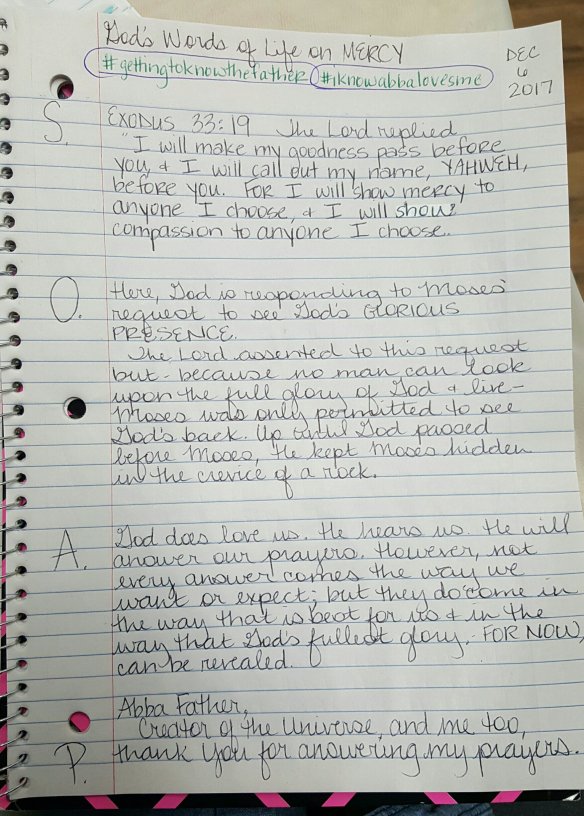 God's Words of Life on MERCY
#gettingtoknowthefather #iknowabbalovesme
DEC
6
2017
S. EXODUS 33:19 The Lord replied
"I will make my goodness pass before
you, & I will call out my name, YAHWEH,
before you. FOR I will show mercy to
anyone I choose, & I will show
compassion to anyone I choose.
O. Here, God is responding to Moses'
request to see God's GLORIOUS
PRESENCE.
The Lord assented to this request
but - because no man can look
upon the full glory of God & live -
Moses was only permitted to see
God's back. Up until God passed
before Moses, He kept Moses hidden
in the crevice of a rock.
A. God does love us. He hears us. He will
answer our prayers. However, not
every answer comes the way we
want or expect; but they do come in
the way that is best for us & in the
way that God's fullest glory, - FOR NOW,
can be revealed.
Abba Father,
Creator of the Universe, and me too,
P. thank You for answering my prayers.